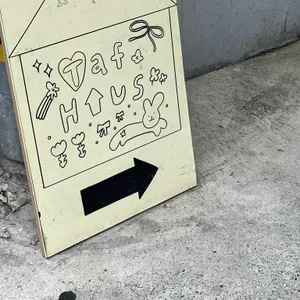 Taf
H↑US